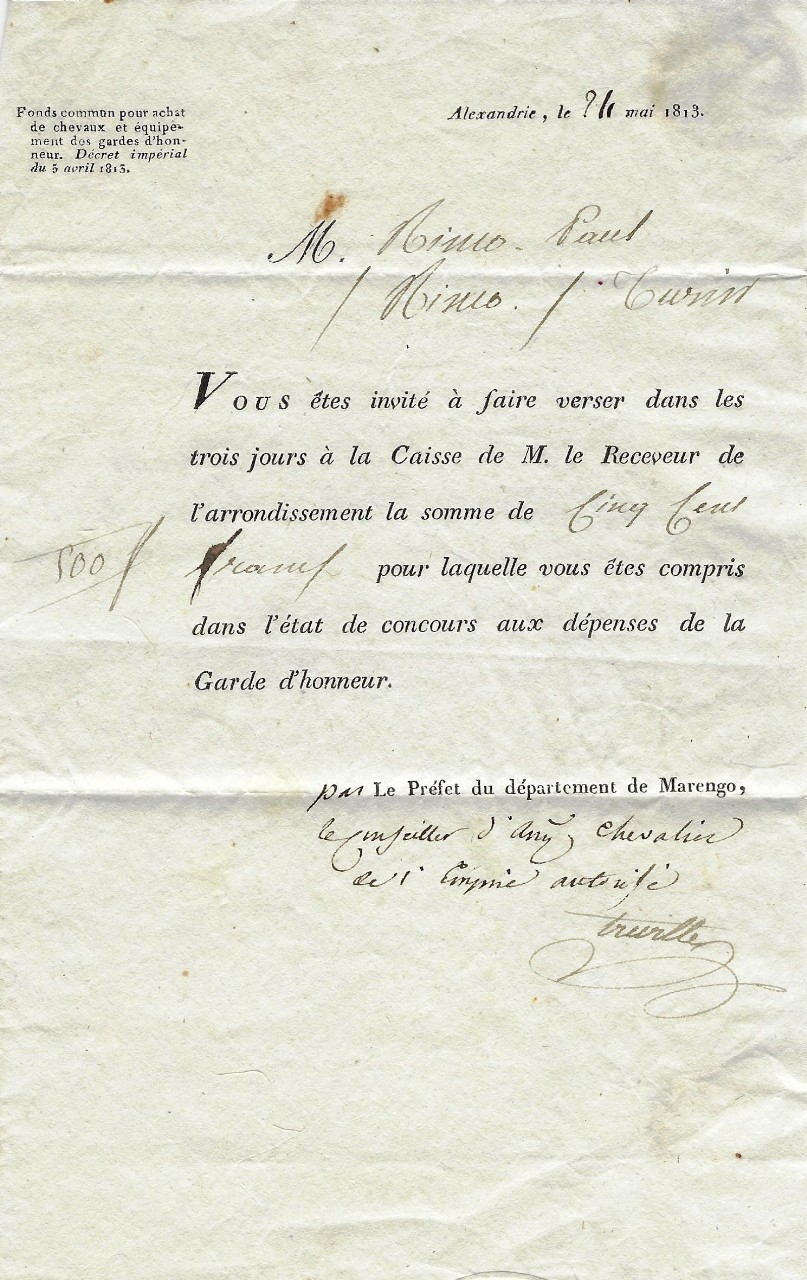 Fonds commun pour achat
de chevaux et équipe-
ment des gardes d'hon-
neur. Décret impérial
du 5 avril 1813.
Alexandrie, le 24 mai 1813.
M. Paul
/ / Turin
Vous êtes invité à faire verser dans les
trois jours à la Caisse de M. le Receveur de
l'arrondissement la somme de Cinq Cent
500 f francs pour laquelle vous êtes compris
dans l'état de concours aux dépenses de la
Garde d'honneur.
par Le Préfet du département de Marengo,
le Conseiller chevalier
de l'Empire autorisé